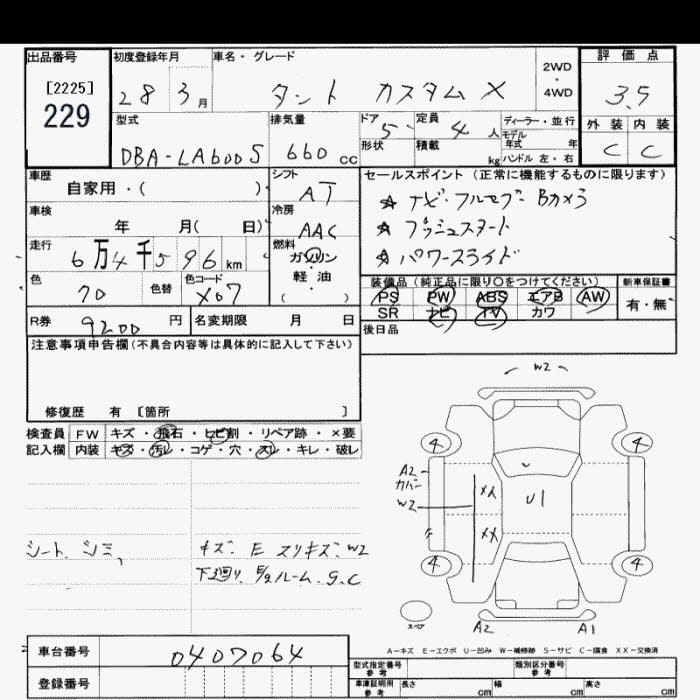 出品番号
[2225]
229
初度登録年月
28 3月
車名・グレード
タント カスタム X
2WD・4WD
評価点
3.5
外装 内装
C C
型式
DBA-LA600S
排気量
660 cc
ドア 5
形状
定員 4 人
積載 kg
ディーラー・並行
モデル年式 年
ハンドル 左・右
車歴
自家用・( )
シフト
AT
車検
年 月( 日)
冷房
AAC
走行
6万4千596 km
燃料
ガソリン・軽油
( )
色
70
色替
色コード
X07
R券 9200 円
名変期限 月 日
セールスポイント (正常に機能するものに限ります)
☆ ナビ・フルセグ・Bカメラ
☆ プッシュスタート
☆ パワースライド
装備品(純正品に限り○をつけてください)
PS PW ABS エアB AW
SR ナビ TV カワ
新車保証書
有・無
後日品
注意事項申告欄(不具合内容等は具体的に記入して下さい)
修復歴 有 [箇所 ]
検査員記入欄
FW キズ・飛石・ヒビ割・リペア跡・×要
内装 キズ・汚レ・コゲ・穴・スレ・キレ・破レ
シート シミ、
キズ. E スリキズ. W2
下廻り, E/2ルーム. S.C
W2
4 4
A2
カバー
W2
XX
XX
U1
4 4
スペア
A2 A1
A-キズ E-エクボ U-凹み W-補修跡 S-サビ C-腐食 XX-交換済
車台番号 0407064
登録番号
型式指定番号 参考
類別区分番号 参考
車庫証明用 参考
長さ cm 幅 cm 高さ cm